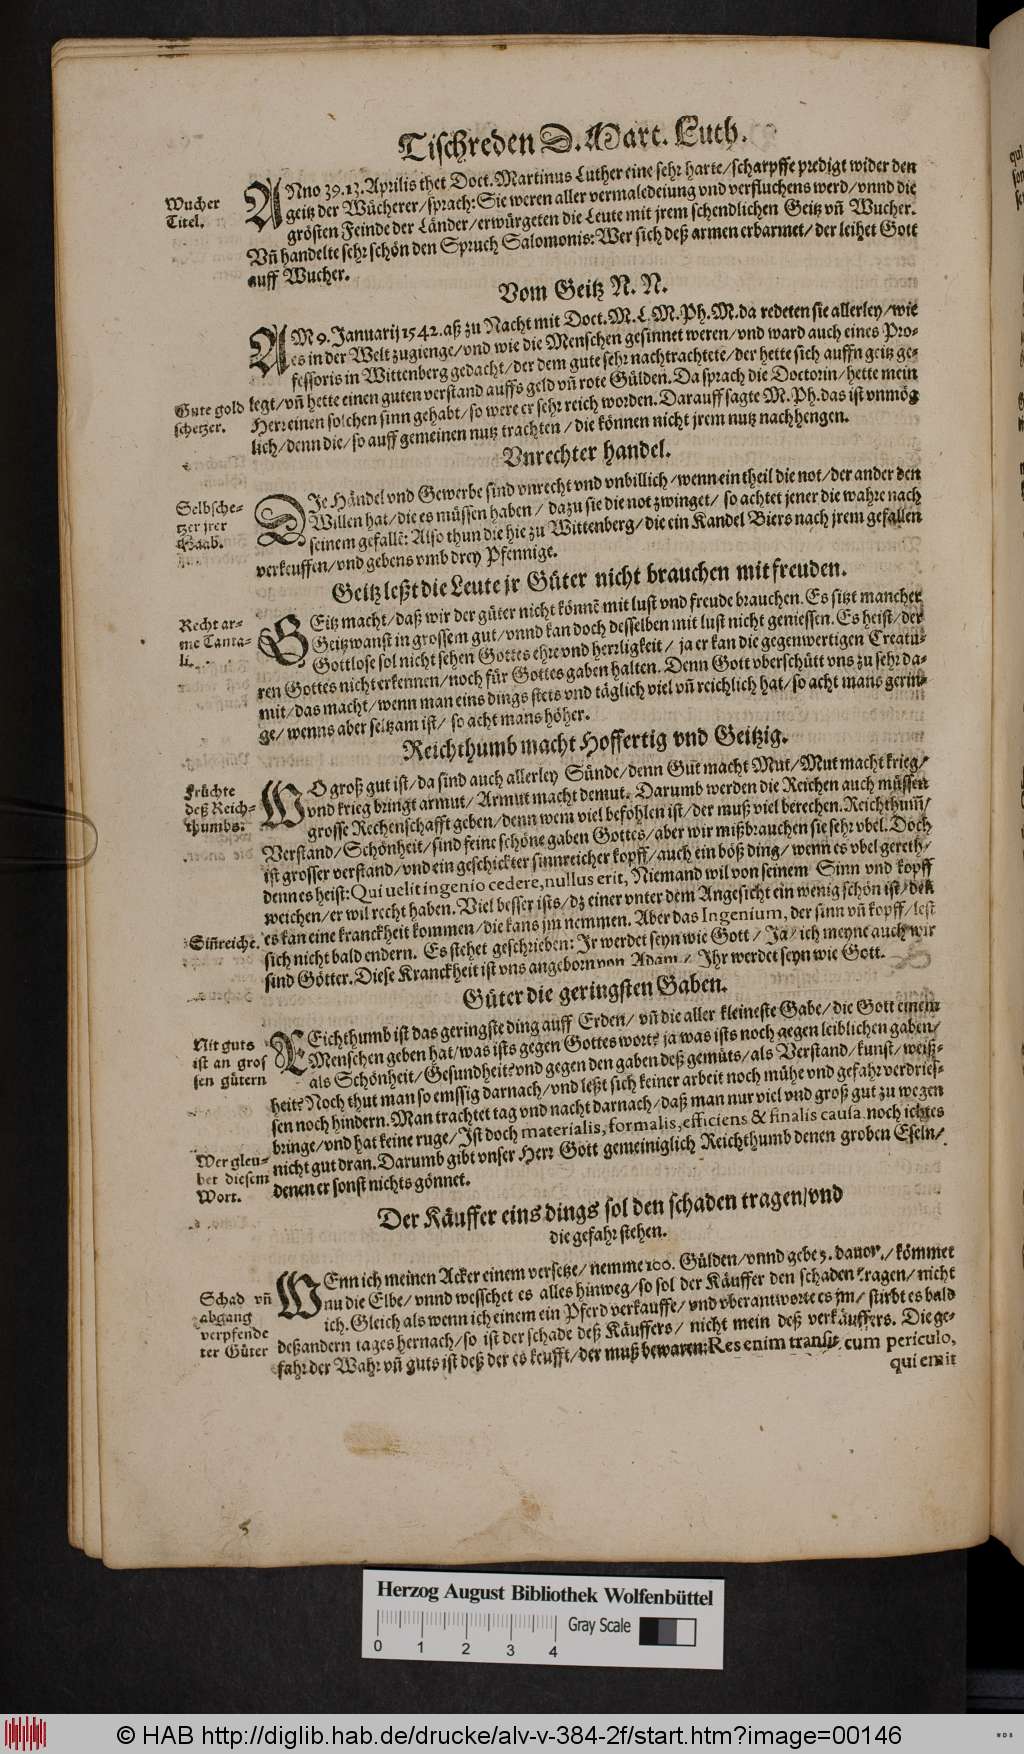 Tischreden D. Mart. Luth.
Wucher
Titel.
ANno 39. 13. Aprilis thet Doct. Martinus Luther eine sehr harte/scharpffe predigt wider den
geitz der Wücherer/sprach: Sie weren aller vermaledeiung vnd verfluchens werd/vnnd die
grösten Feinde der Länder/erwürgeten die Leute mit jrem schendlichen Geitz vñ Wucher.
Vñ handelte sehr schön den Spruch Salomonis: Wer sich deß armen erbarmet/der leihet Gott
auff Wucher.
Vom Geitz N. N.
AM 9. Januarij 1542. aß zu Nacht mit Doct. M. L. M. Ph. M. da redeten sie allerley/wie
es in der Welt zugienge/vnd wie die Menschen gesinnet weren/vnd ward auch eines Pro-
fessoris in Wittenberg gedacht/der dem gute sehr nachtrachtete/der hette sich auffn geitz ge-
Gute gold
schetzer.
legt/vñ hette einen guten verstand auffs geld vñ rote Gülden. Da sprach die Doctorin/hette mein
Herr einen solchen sinn gehabt/so were er sehr reich worden. Darauff sagte M. Ph. das ist vnmög
lich/denn die/so auff gemeinen nutz trachten/die können nicht jrem nutz nachhengen.
Vnrechter handel.
Selbsche-
tzer jrer
Haab.
DJe Händel vnd Gewerbe sind vnrecht vnd vnbillich/wenn ein theil die not/der ander den
Willen hat/die es müssen haben/dazu sie die not zwinget/so achtet jener die wahre nach
seinem gefallẽ: Also thun die hie zu Wittenberg/die ein Kandel Biers nach jrem gefallen
verkeuffen/vnd gebens vmb drey Pfennige.
Geitz leßt die Leute jr Güter nicht brauchen mit freuden.
Recht ar-
me Tanta-
li.
GEitz macht/daß wir der güter nicht könnẽ mit lust vnd freude brauchen. Es sitzt mancher
Geitzwanst in grossem gut/vnnd kan doch desselben mit lust nicht geniessen. Es heist/der
Gottlose sol nicht sehen Gottes ehre vnd herrligkeit/ja er kan die gegenwertigen Creatu-
ren Gottes nicht erkennen/noch für Gottes gaben halten. Denn Gott vberschütt vns zu sehr da-
mit/das macht/wenn man eins dings stets vnd täglich viel vñ reichlich hat/so acht mans gerin-
ge/wenns aber seltzam ist/so acht mans höher.
Reichthumb macht Hoffertig vnd Geitzig.
Früchte
deß Reich-
thumbs.
WO groß gut ist/da sind auch allerley Sünde/denn Gut macht Mut/Mut macht krieg/
vnd krieg bringt armut/Armut macht demut. Darumb werden die Reichen auch müssen
grosse Rechenschafft geben/denn wem viel befohlen ist/der muß viel berechen. Reichthum̃/
Verstand/Schönheit/sind feine schöne gaben Gottes/aber wir mißbrauchen sie sehr vbel. Doch
ist grosser verstand/vnd ein geschickter sinnreicher kopff/auch ein böß ding/wenn es vbel gereth/
denn es heist: Qui uelit ingenio cedere, nullus erit, Niemand wil von seinem Sinn vnd kopff
weichen/er wil recht haben. Viel besser ists/dz einer vnter dem Angesicht ein wenig schön ist/den
Siñreiche.
es kan eine kranckheit kommen/die kans jm nemmen. Aber das Ingenium, der sinn vñ kopff/lest
sich nicht bald endern. Es stehet geschrieben: Jr werdet seyn wie Gott/Ja/ich meyne auch wir
sind Götter. Diese Kranckheit ist vns angeborn von Adam/Jhr werdet seyn wie Gott.
Güter die geringsten Gaben.
Nit guts
ist an gros
sen gütern
REichthumb ist das geringste ding auff Erden/vñ die aller kleineste Gabe/die Gott einem
Menschen geben hat/was ists gegen Gottes wort? ja was ists noch gegen leiblichen gaben/
als Schönheit/Gesundheit? vnd gegen den gaben deß gemüts/als Verstand/kunst/weiß-
heit? Noch thut man so emssig darnach/vnd leßt sich keiner arbeit noch mühe vnd gefahr verdries-
sen noch hindern. Man trachtet tag vnd nacht darnach/daß man nur viel vnd groß gut zu wegen
bringe/vnd hat keine ruge/Jst doch materialis, formalis, efficiens & finalis causa, noch ichtes
Wer gleu-
bet diesem
Wort.
nicht gut dran. Darumb gibt vnser Herr Gott gemeiniglich Reichthumb denen groben Eseln/
denen er sonst nichts gönnet.
Der Käuffer eins dings sol den schaden tragen/vnd
die gefahr stehen.
Schad vñ
abgang
verpfende
ter Güter
WEnn ich meinen Acker einem versetze/nemme 100. Gülden/vnnd gebe 5. dauon/kömmet
nu die Elbe/vnnd wesschet es alles hinweg/so sol der Käuffer den schaden tragen/nicht
ich. Gleich als wenn ich einem ein Pferd verkauffe/vnd vberantworte es jm/stirbt es bald
deß andern tages hernach/so ist der schade deß Käuffers/nicht mein deß verkäuffers. Die ge-
fahr der Wahr vñ guts ist deß der es keufft/der muß bewaren: Res enim transit cum periculo,
qui emit
Herzog August Bibliothek Wolfenbüttel
0 1 2 3 4
Gray Scale
© HAB http://diglib.hab.de/drucke/alv-v-384-2f/start.htm?image=00146